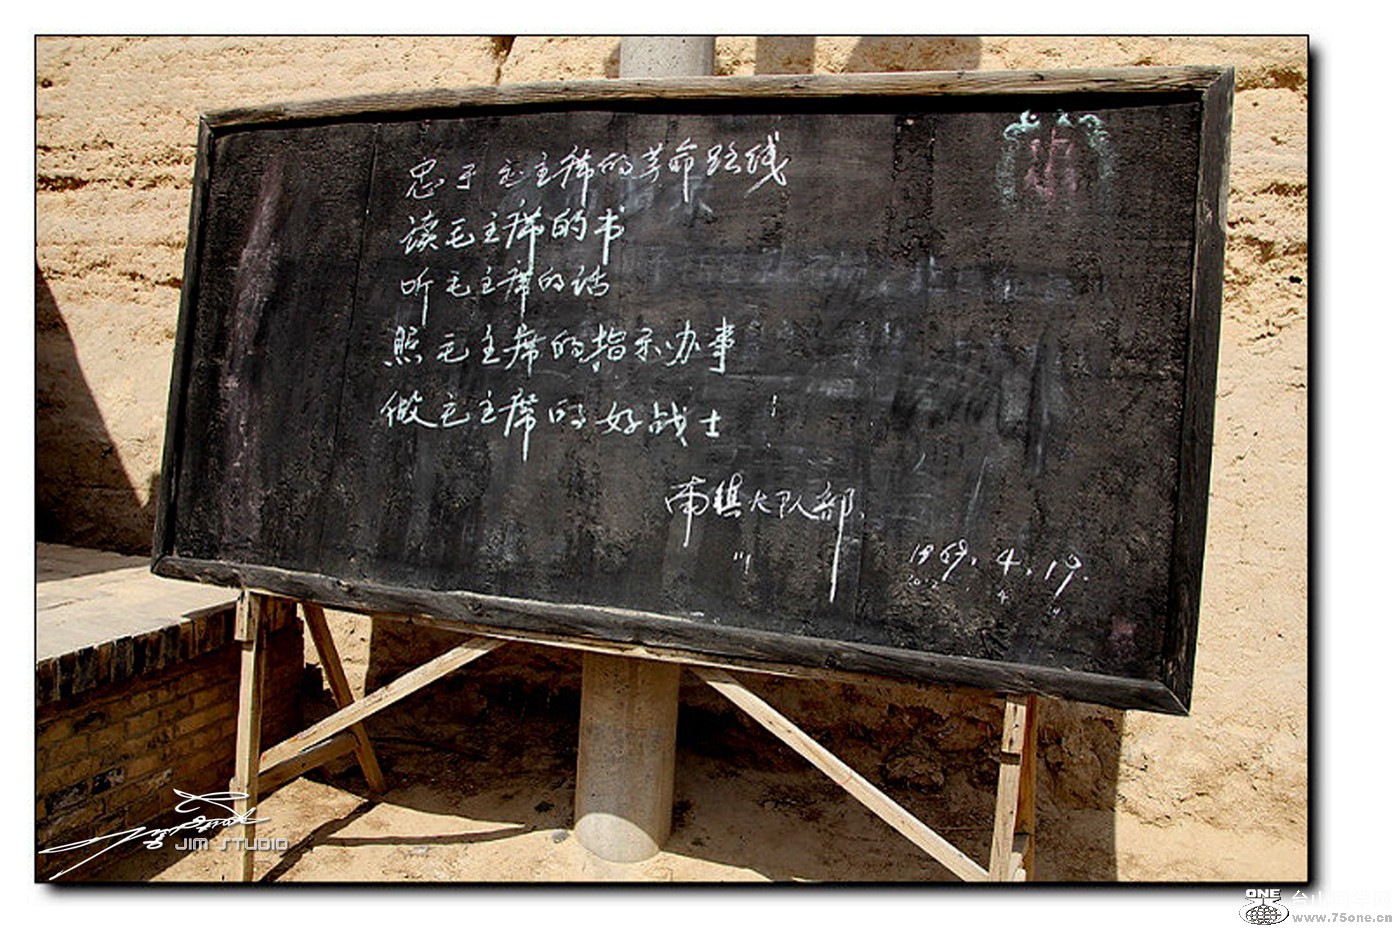 忠于毛主席的革命路线
读毛主席的书
听毛主席的话
照毛主席的指示办事
做毛主席的好战士
南镇大队部.
1969.4.19.
2012 . 4 "
JIM STUDIO
ONE
www.75one.cn